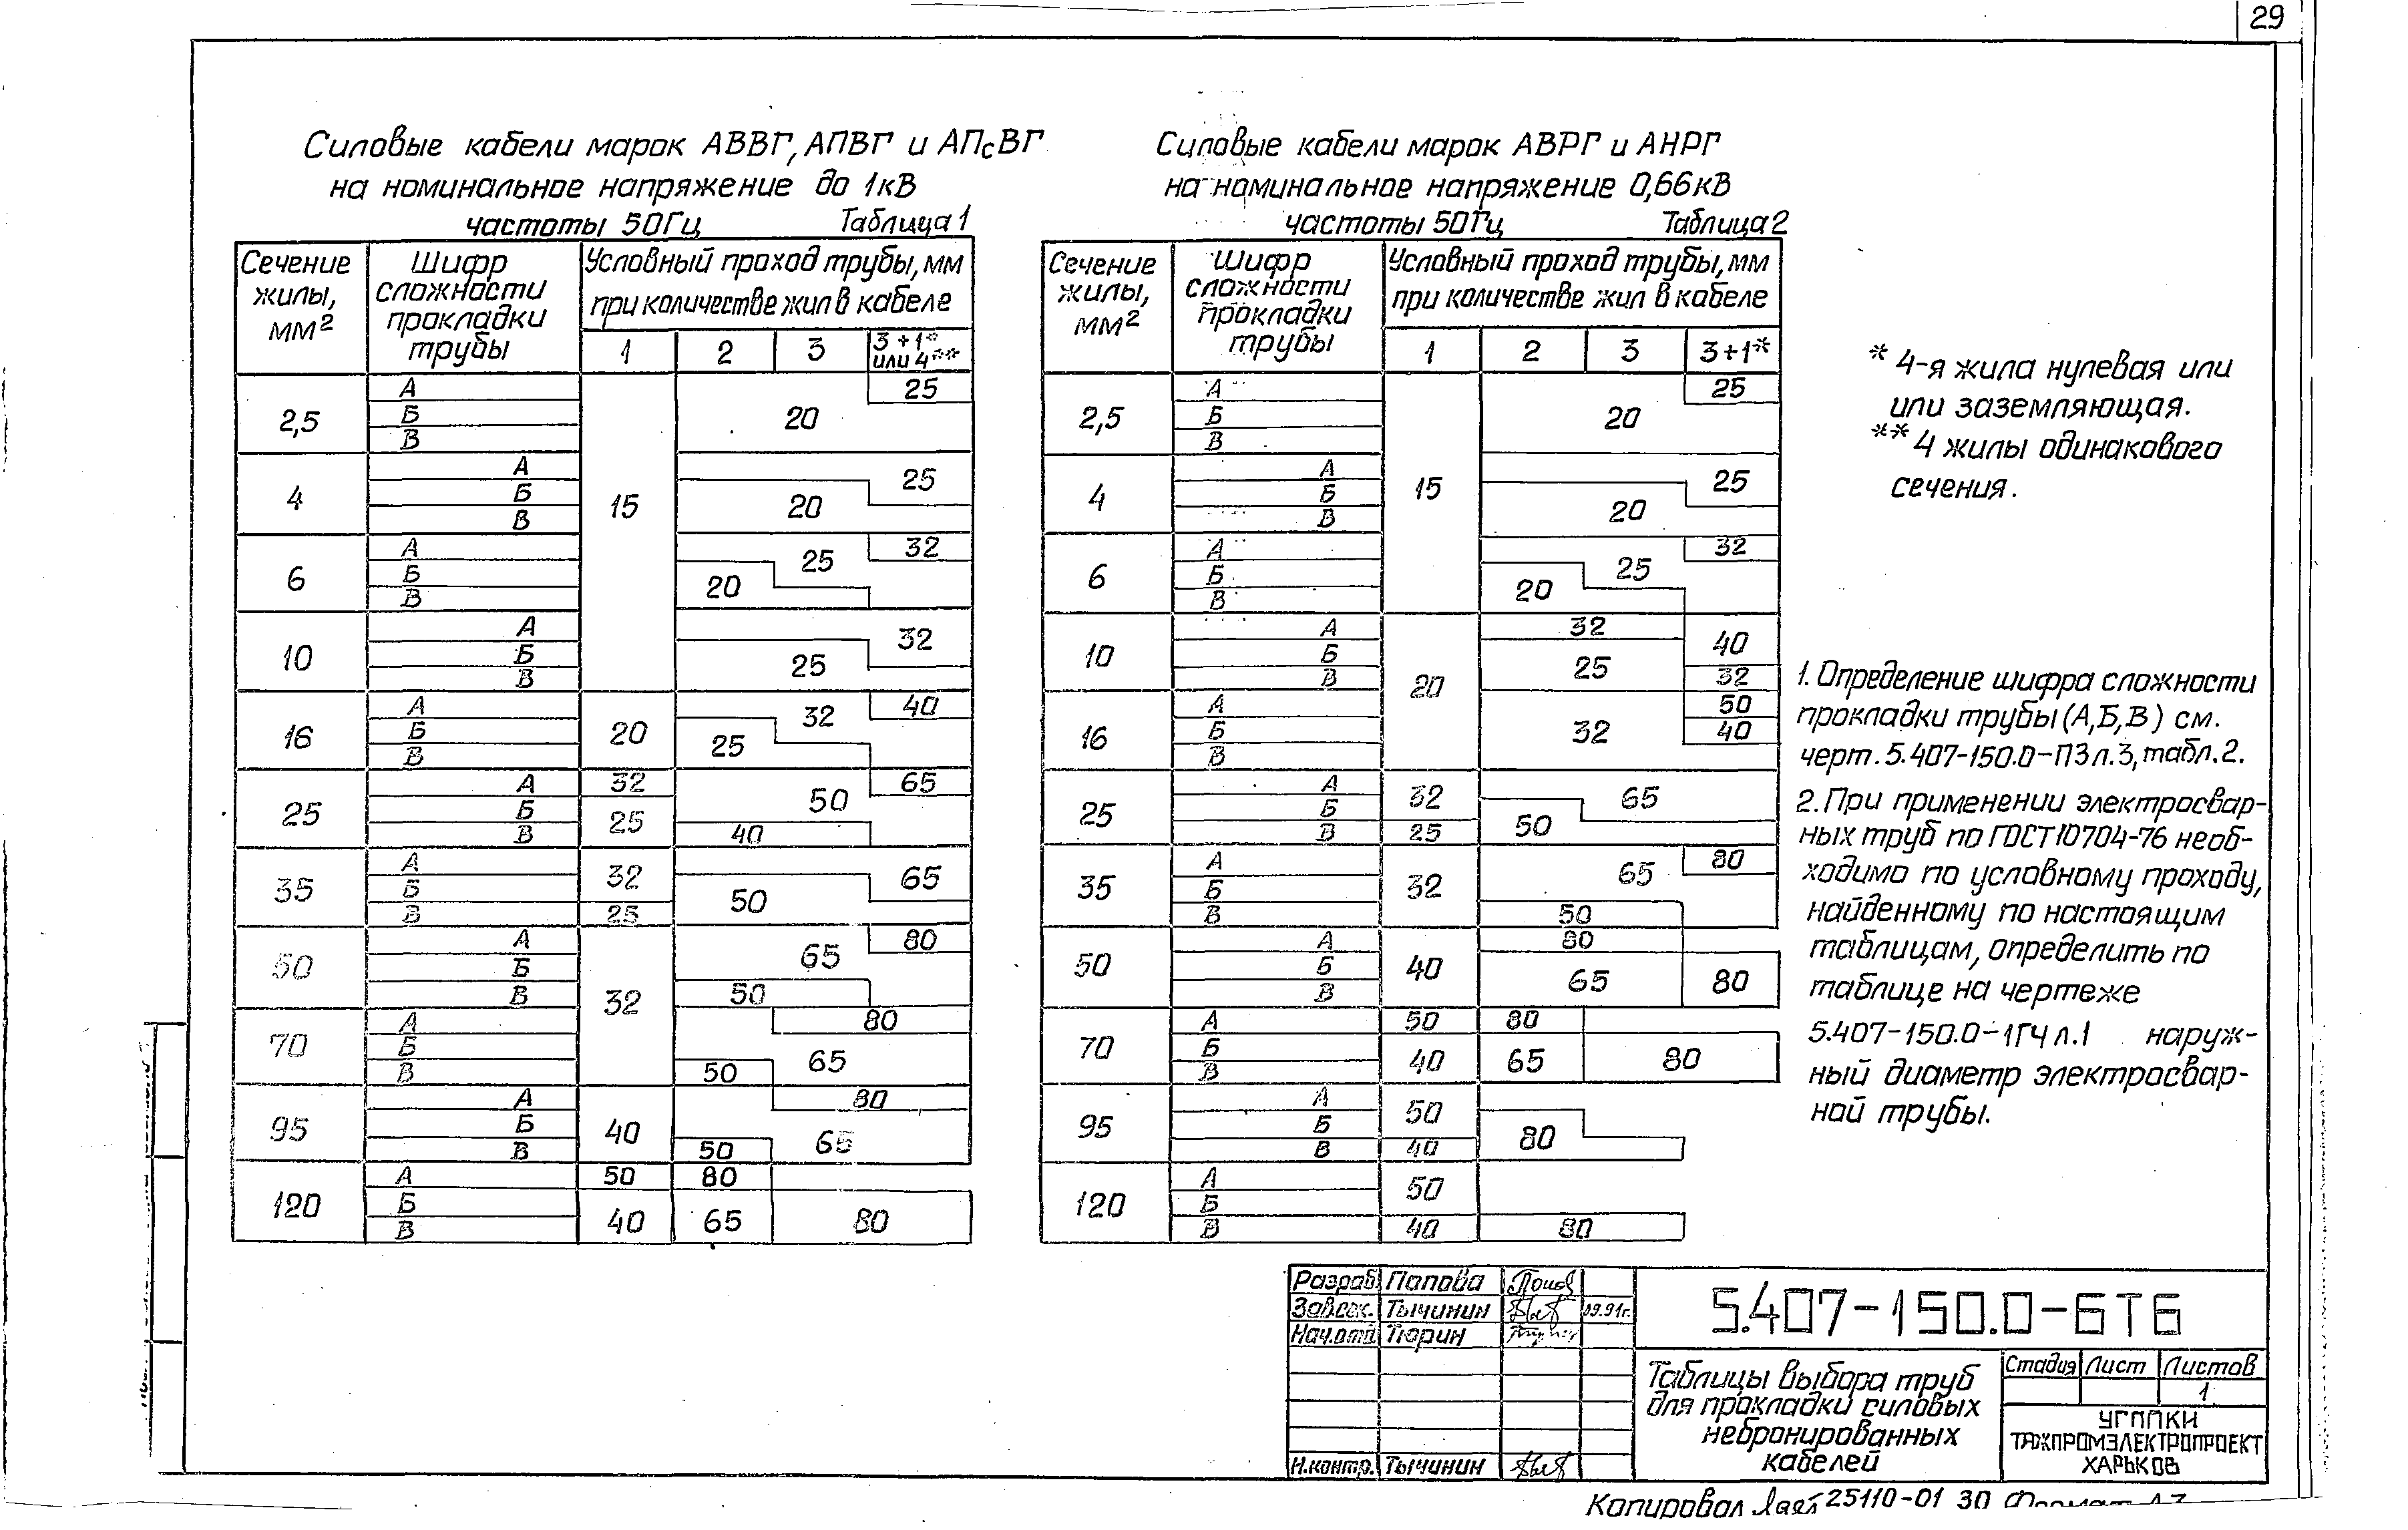 29
Силовые кабели марок АВВГ, АПВГ и АПсВГ
на номинальное напряжение до 1кВ
частоты 50Гц Таблица 1
Сечение жилы, мм2
Шифр сложности прокладки трубы
Условный проход трубы, мм
при количестве жил в кабеле
1 2 3 3+1* или 4**
2,5 А Б В 15 20 25
4 А Б В 20 25
6 А Б В 20 25 32
10 А Б В 25 32
16 А Б В 20 25 32 40
25 А Б В 32 25 40 50 65
35 А Б В 32 25 50 65
50 А Б В 32 50 65 80
70 А Б В 50 65 80
95 А Б В 40 50 65 80
120 А Б В 50 40 80 65 80
Силовые кабели марок АВРГ и АНРГ
на номинальное напряжение 0,66кВ
частоты 50Гц Таблица 2
Сечение жилы, мм2
Шифр сложности прокладки трубы
Условный проход трубы, мм
при количестве жил в кабеле
1 2 3 3+1*
2,5 А Б В 15 20 25
4 А Б В 20 25
6 А Б В 20 25 32
10 А Б В 20 32 25 40 32
16 А Б В 32 50 40
25 А Б В 32 25 50 65
35 А Б В 32 65 50 80
50 А Б В 40 80 65 80
70 А Б В 50 40 80 65 80
95 А Б В 50 40 80
120 А Б В 50 40 80
* 4-я жила нулевая или
или заземляющая.
** 4 жилы одинакового
сечения.
1. Определение шифра сложности
прокладки трубы (А,Б,В) см.
черт. 5.407-150.0-ПЗ л.3, табл.2.
2. При применении электросвар-
ных труб по ГОСТ10704-76 необ-
ходимо по условному проходу,
найденному по настоящим
таблицам, определить по
таблице на чертеже
5.407-150.0-1ГЧ л.1 наруж-
ный диаметр электросвар-
ной трубы.
Разраб. Попова
Зав.сек. Тычинин 09.91г.
Нач.отд. Тюрин
Н.контр. Тычинин
5.407-150.0-6ТБ
Таблицы выбора труб
для прокладки силовых
небронированных
кабелей
Стадия Лист Листов
1
УГППКИ
ТЯЖПРОМЭЛЕКТРОПРОЕКТ
ХАРЬКОВ
Копировал 25110-01 30 Формат А3